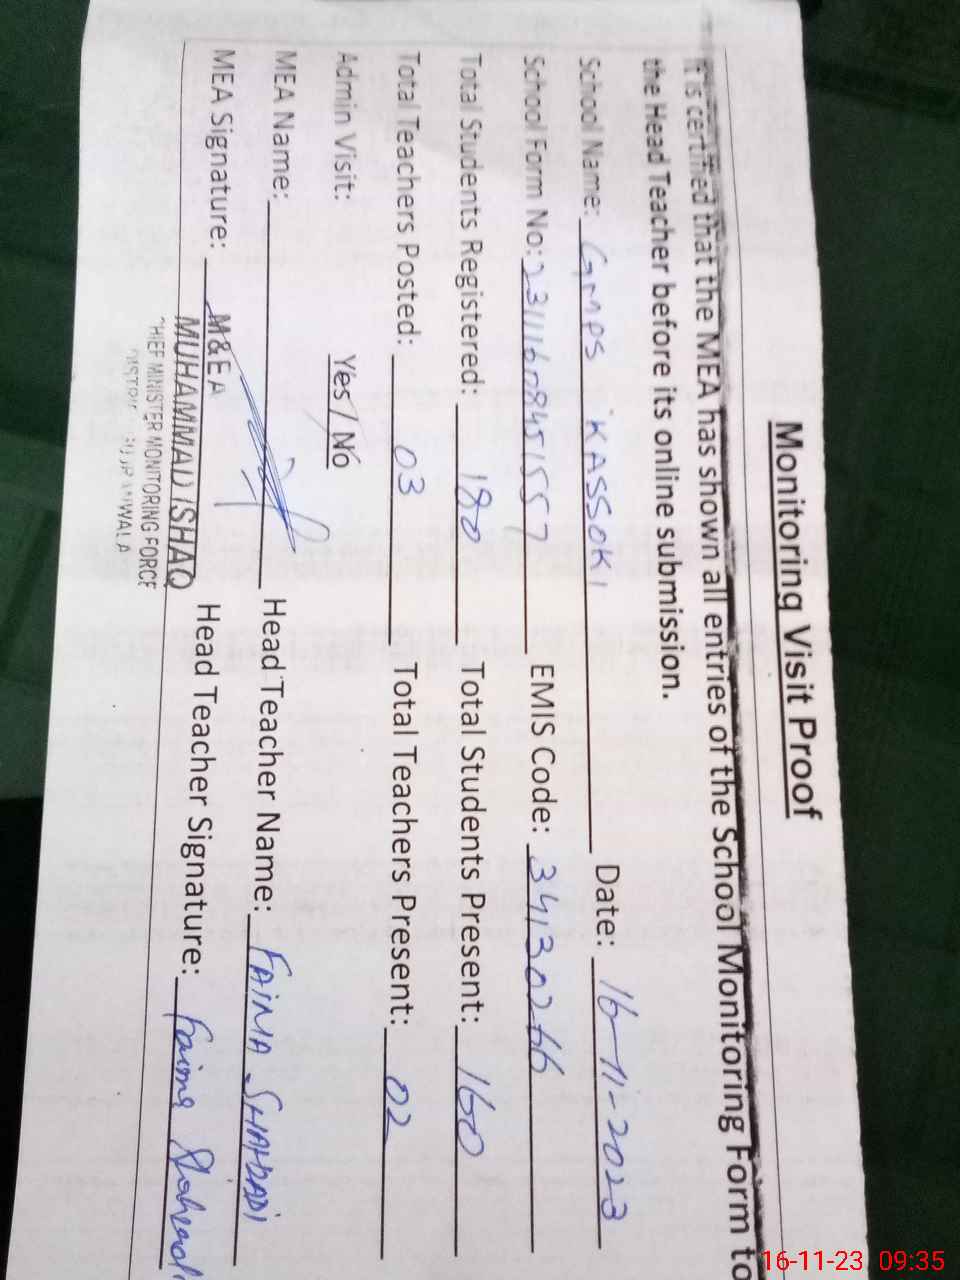 Monitoring Visit Proof
It is certified that the MEA has shown all entries of the School Monitoring Form to
the Head Teacher before its online submission.
School Name: GMPS KASSOKI Date: 16-11-2023
School Form No: 2311160845155 EMIS Code: 34130266
Total Students Registered: 180 Total Students Present: 160
Total Teachers Posted: 03 Total Teachers Present: 02
Admin Visit: Yes / No
MEA Name: Head Teacher Name: FAIMA SHAHZADI
MEA Signature: Head Teacher Signature: Faima
M&EA
MUHAMMAD ISHAQ
CHIEF MINISTER MONITORING FORCE
16-11-23 09:35